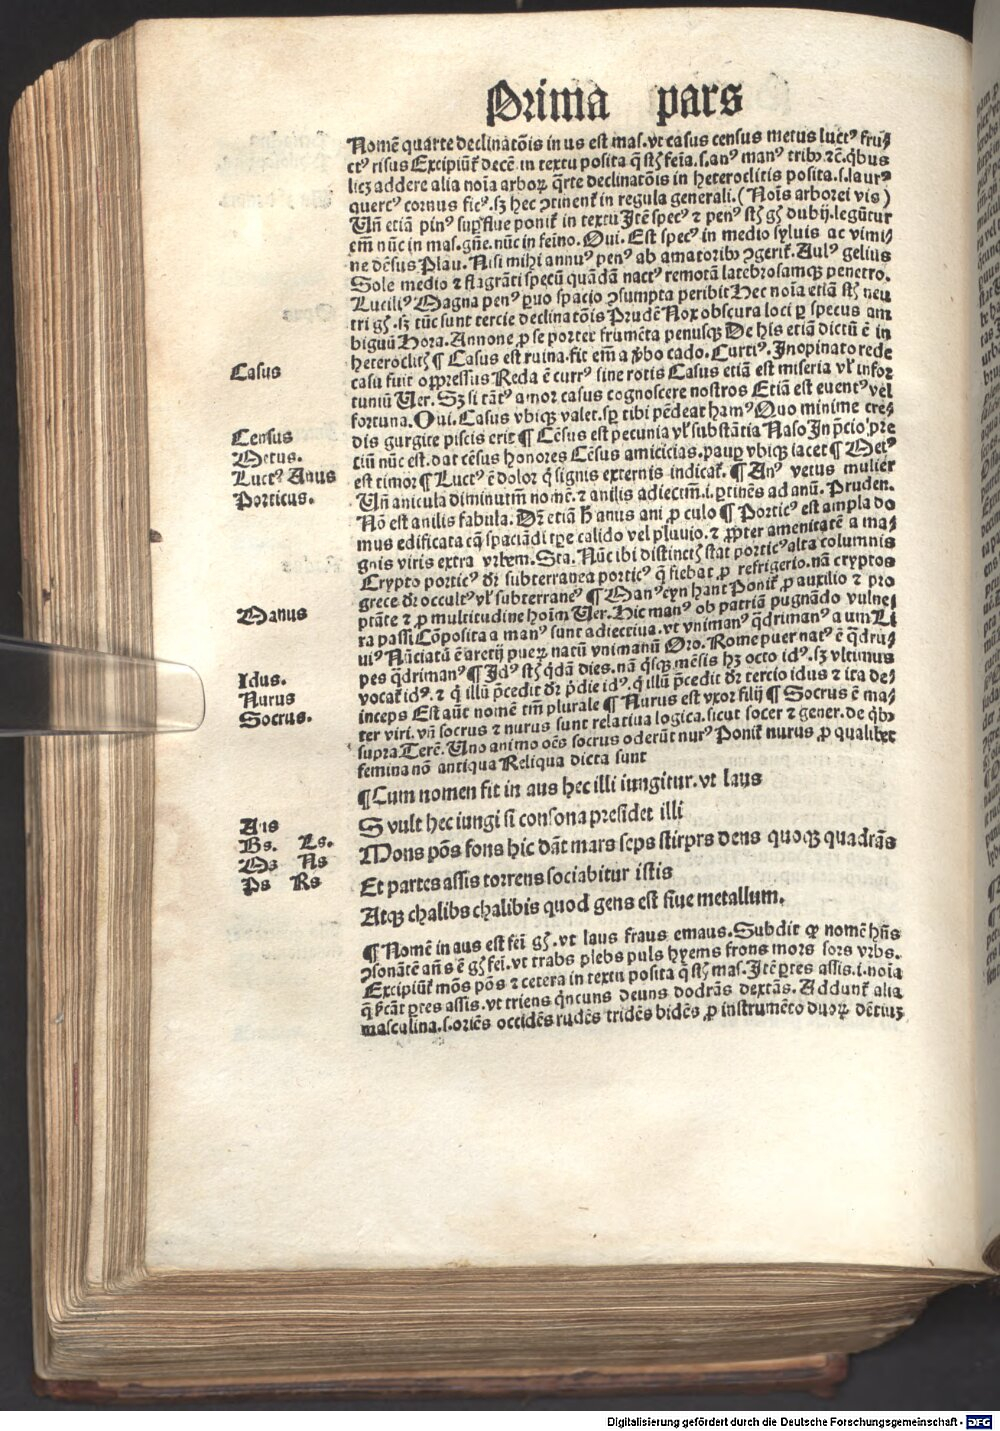 Prima pars
Nomē quarte declinatōis in us est mas. vt casus census metus luctꝰ fru⸗
ctꝰ risus Excipiūt᷑ decē. in textu posita q̄ st̄ feīa. s. anꝰ manꝰ tribꝰ ⁊c̄. q̄bus
licꝫ addere alia noīa arboꝝ q̄rte declinatōis in heteroclitis posita. s. laurꝰ
quercꝰ cornus ficꝰ. sꝫ hec ꝯtinent᷑ in regula generali. (Noīs arborei vis)
Uñ etiā pinꝰ suꝑflue ponit᷑ in textu Itē specꝰ ⁊ penꝰ st̄ gn̄ dubij. legūtur
em̄ nūc in mas. gn̄e. nūc in feīno. Oui. Est specꝰ in medio syluis ac vimi⸗
ne dēsus Plau. Nisi mihi annuꝰ penꝰ ab amatoribꝰ ꝯgerit᷑. Aulꝰ gelius
Sole medio ⁊ flagrāti specū quādā nactꝰ remotā latebrosamqꝫ penetro.
Luciliꝰ Magna penꝰ ꝑuo spacio ꝯsumpta peribit Hec noīa etiā st̄ neu
tri gn̄. sꝫ tūc sunt tercie declinatōis Prudē Nox obscura loci ꝑ specus am
biguū Hora. Annone ꝓ se portet frumēta penusqꝫ De his etiā dictū ē in
heteroclitꝭ ¶ Casus est ruina. fit em̄ a ꝟbo cado. Curtiꝰ. Inopinato rede
casu fuit oppressus Reda ē currꝰ sine rotis Casus etiā est miseria vl᷑ infor
tuniū Uer. Sꝫ si tātꝰ amor casus cognoscere nostros Etiā est euentꝰ vel
fortuna. Oui. Casus vbiqꝫ valet. sp̄ tibi pēdeat hamꝰ Quo minime cre⸗
dis gurgite piscis erit ¶ Cēsus est pecunia vl᷑ substātia Naso In p̄cio p̄re
tiū nūc est. dat cēsus honores Cēsus amicicias. pauꝑ vbiqꝫ iacet ¶ Metꝰ
est timor ¶ Luctꝰ ē dolor q̄ signis externis indicat᷑. ¶ Anꝰ vetus mulier
Uñ anicula diminutiū nomē. ⁊ anilis adiectiū. i. ꝑtinēs ad anū. Pruden.
Nō est anilis fabula. Dr̄ etiā hic anus ani ꝓ culo ¶ Porticꝰ est ampla do
mus edificata cū spaciādi tꝑe calido vel pluuio. ⁊ ꝓpter amenitatē a ma⸗
gnis viris extra vrbem. Sta. Nūc ibi distinctꝭ stat porticꝰ alta columnis
Crypto porticꝰ dr̄ subterranea porticꝰ q̄ fiebat ꝓ refrigerio. nā cryptos
grece dr̄ occultꝰ vl᷑ subterraneꝰ ¶ Manꝰ Ponit᷑ ꝓ auxilio ⁊ pro
ptāte ⁊ ꝓ multitudine hoīm Uer. Hic manꝰ ob patriā pugnādo vulne⸗
ra passi Cōposita a manꝰ sunt adiectiua. vt vnimanꝰ q̄drimanꝰ a um Li
uiꝰ Nūciatū ē aretij pueꝝ natū vnimanū Oro. Rome puer natꝰ ē q̄dru⸗
pes q̄drimanꝰ ¶ Idꝰ st̄ q̄dā dies. nā q̄sqꝫ mēsis hꝫ octo idꝰ. sꝫ vltimus
vocat᷑ idꝰ. ⁊ q̄ illū p̄cedit dr̄ p̄die idꝰ. q̄ illū p̄cedit dr̄ tercio idus ⁊ ita de⸗
inceps Est aūt nomē tm̄ plurale ¶ Nurus est vxor filij ¶ Socrus ē ma⸗
ter viri. vñ socrus ⁊ nurus sunt relatiua logica. sicut socer ⁊ gener. de q̄bꝰ
supra Terē. Uno animo oēs socrus oderūt nurꝰ Ponit᷑ nurus ꝓ qualibet
femina nō antiqua Reliqua dicta sunt
¶ Cum nomen fit in aus hec illi iungitur. vt laus
S vult hec iungi si consona presidet illi
Mons pōs fons hic dāt mars seps stirps dens quoqꝫ quadrās
Et partes assis torrens sociabitur istis
Atqꝫ chalibs chalibis quod gens est siue metallum.
¶ Nomē in aus est feī gn̄. vt laus fraus emaus. Subdit ꝙ nomē hn̄s
ꝯsonātē añ s ē gn̄ feī. vt trabs plebs puls hyems frons mors sors vrbs.
Excipiūt᷑ mōs pōs ⁊ cetera in textu posita q̄ st̄ mas. Itē ꝑtes assis. i. noīa
q̄ sīcāt ꝑtes assis. vt triens q̄ncuns deuns dodrās dextās. Addunt᷑ alia
masculina. s. oriēs occidēs rudēs tridēs bidēs ꝓ instrumēto duoꝝ dētiuꝫ
Casus
Census
Metus.
Luctꝰ Anus
Porticus.
Manus
Idus.
Nurus
Socrus.
Aus
Bs. Ls.
Ms Ns
Ps Rs
Digitalisierung gefördert durch die Deutsche Forschungsgemeinschaft - DFG